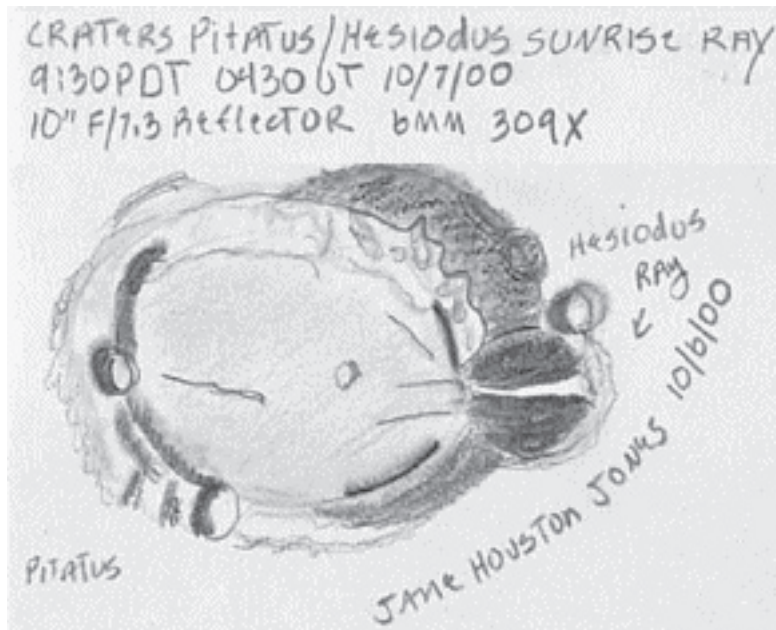 CRATERS PitATUS/HesiODUS SUNRISE RAY
9:30PDT 0430 UT 10/7/00
10" F/7.3 ReflecTOR 6MM 309X
HesiODUS
RAy
JANe HOUSTON JONes 10/6/00
PiTATUS